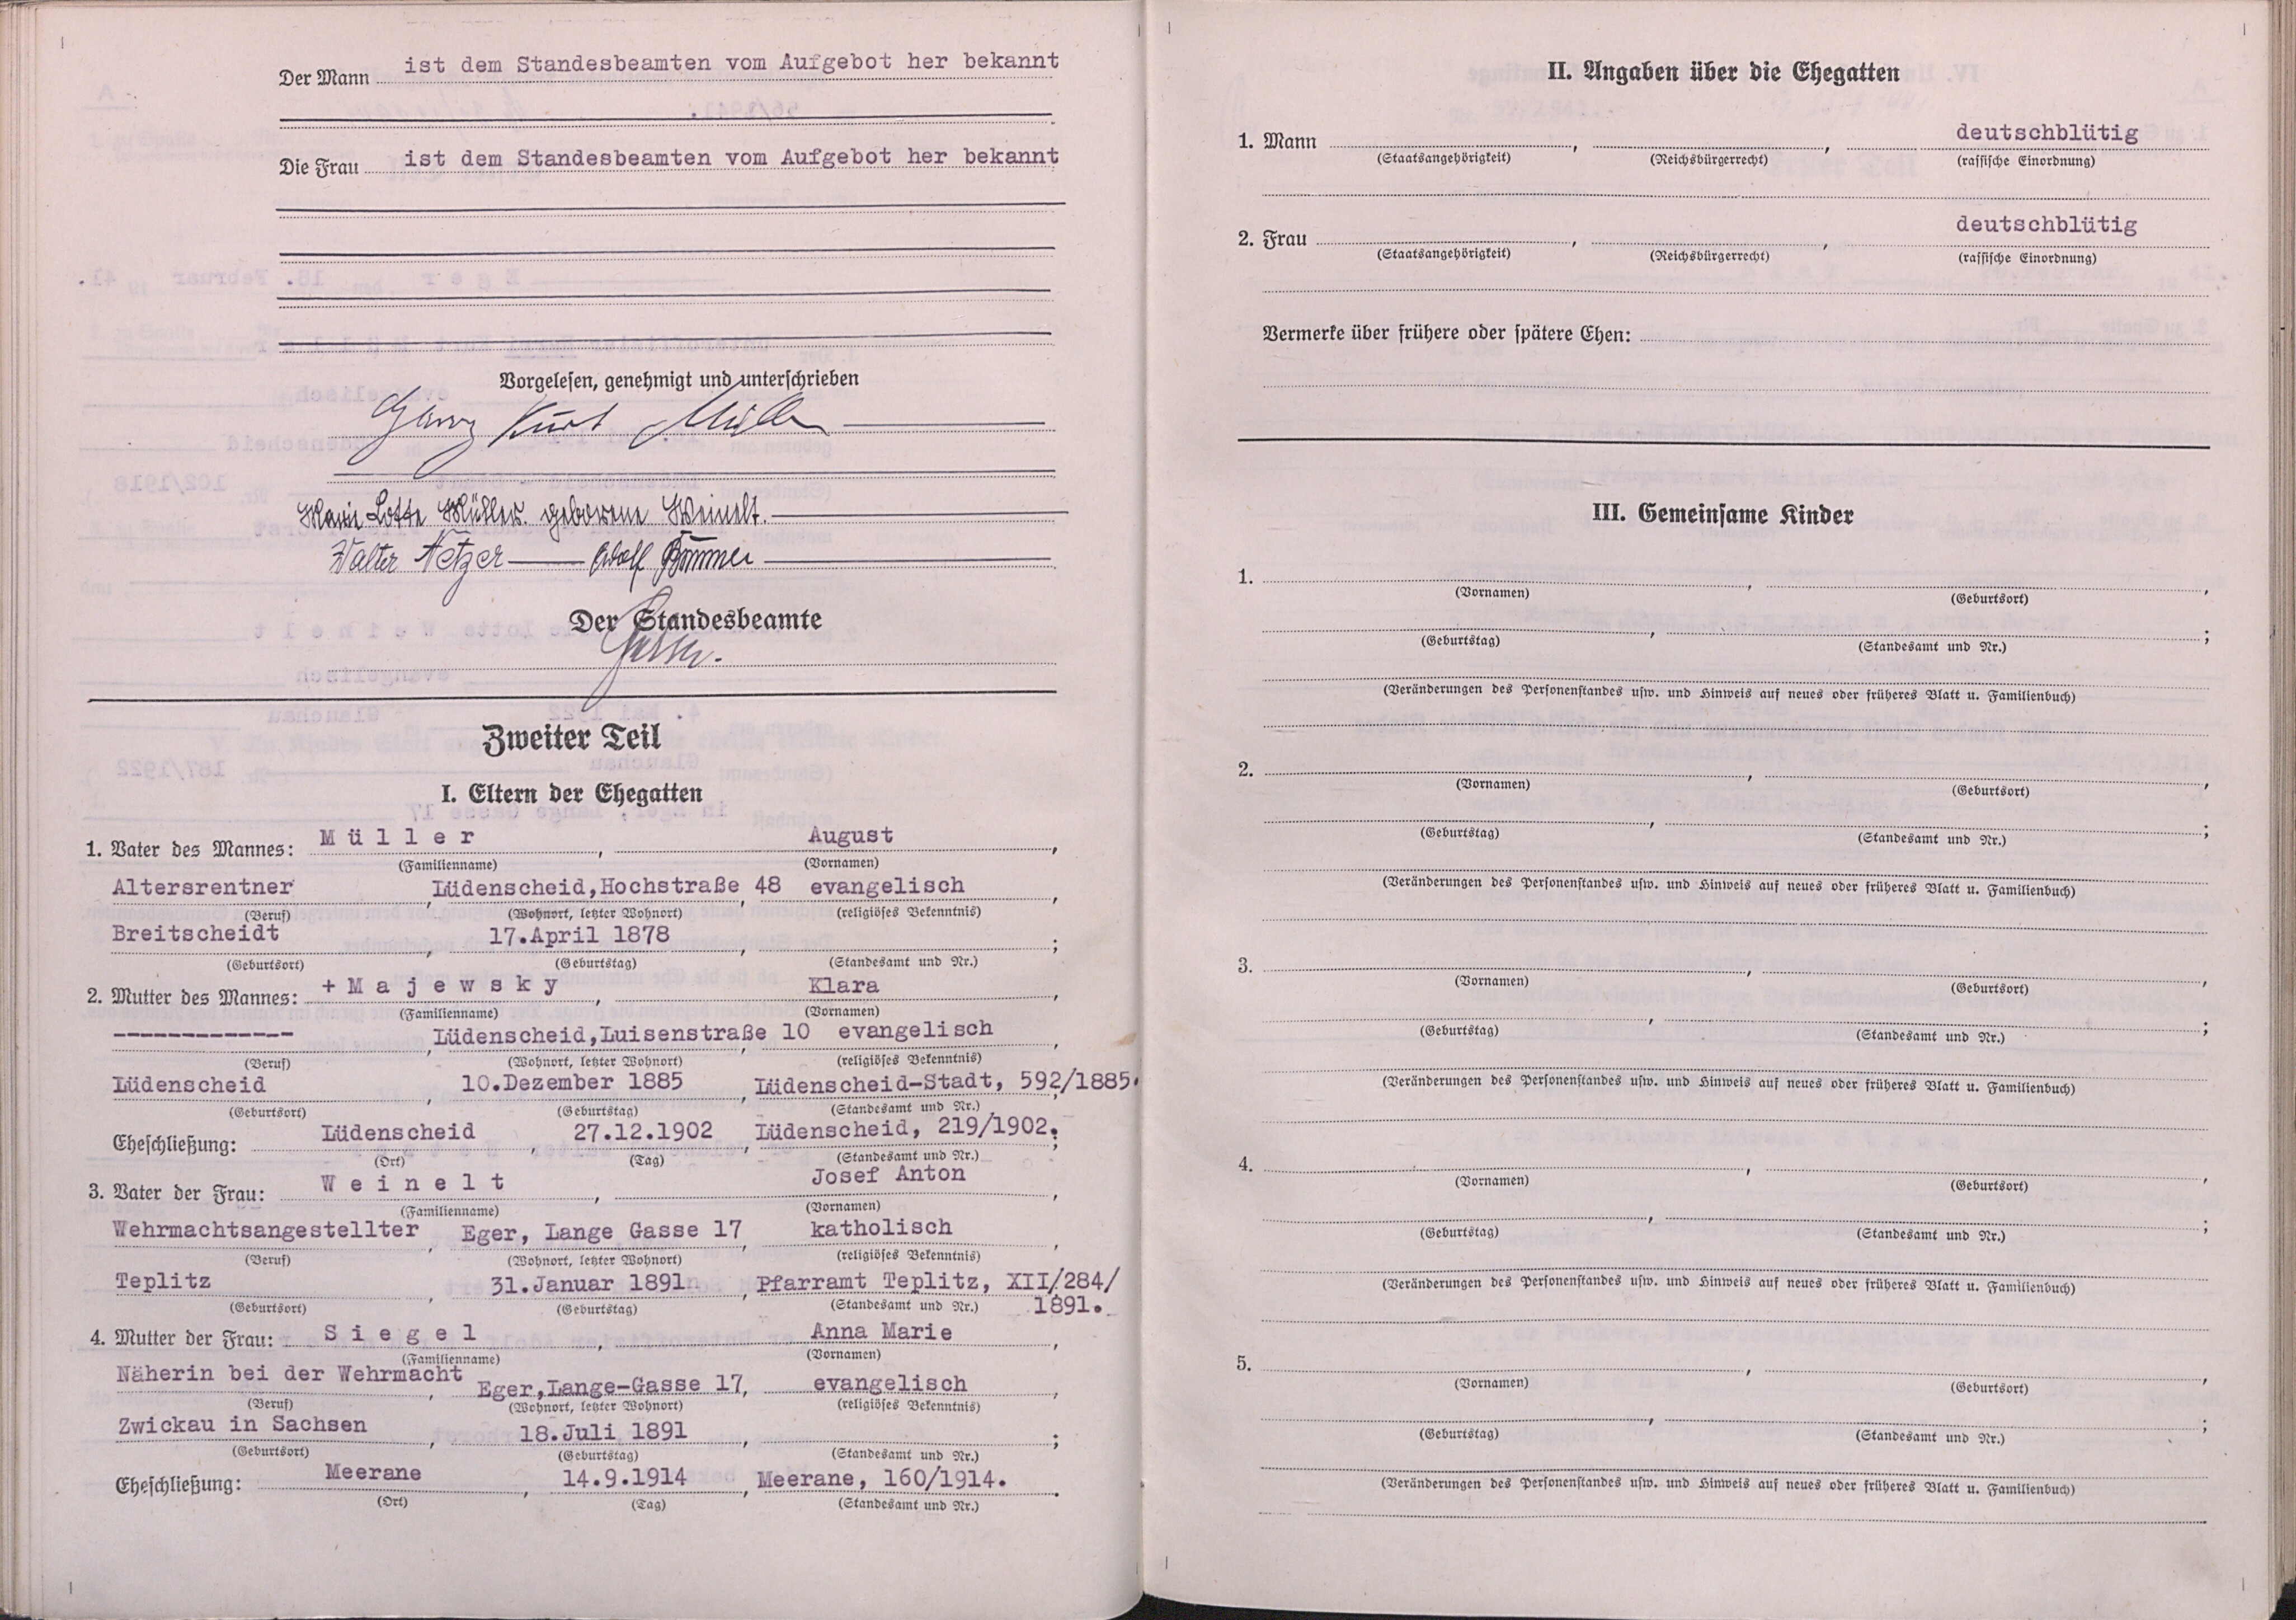 Der Mann ist dem Standesbeamten vom Aufgebot her bekannt
Die Frau ist dem Standesbeamten vom Aufgebot her bekannt
Vorgelesen, genehmigt und unterschrieben
Kurt Müller
Marie Lotte Müller. geborene Weinelt.
Walter Netzer Adolf
Der Standesbeamte
Zweiter Teil
I. Eltern der Ehegatten
1. Vater des Mannes: Müller, August,
(Familienname) (Vornamen)
Altersrentner, Lüdenscheid,Hochstraße 48 evangelisch,
(Beruf) (Wohnort, letzter Wohnort) (religiöses Bekenntnis)
Breitscheidt, 17.April 1878, ;
(Geburtsort) (Geburtstag) (Standesamt und Nr.)
2. Mutter des Mannes: +Majewsky, Klara,
(Familienname) (Vornamen)
-------------, Lüdenscheid,Luisenstraße 10 evangelisch,
(Beruf) (Wohnort, letzter Wohnort) (religiöses Bekenntnis)
Lüdenscheid, 10.Dezember 1885, Lüdenscheid-Stadt, 592/1885.
(Geburtsort) (Geburtstag) (Standesamt und Nr.)
Eheschließung: Lüdenscheid, 27.12.1902, Lüdenscheid, 219/1902.;
(Ort) (Tag) (Standesamt und Nr.)
3. Vater der Frau: Weinelt, Josef Anton,
(Familienname) (Vornamen)
Wehrmachtsangestellter, Eger, Lange Gasse 17, katholisch,
(Beruf) (Wohnort, letzter Wohnort) (religiöses Bekenntnis)
Teplitz, 31.Januar 1891, Pfarramt Teplitz, XII/284/
(Geburtsort) (Geburtstag) (Standesamt und Nr.) 1891.
4. Mutter der Frau: Siegel, Anna Marie,
(Familienname) (Vornamen)
Näherin bei der Wehrmacht, Eger,Lange-Gasse 17, evangelisch,
(Beruf) (Wohnort, letzter Wohnort) (religiöses Bekenntnis)
Zwickau in Sachsen, 18.Juli 1891, ;
(Geburtsort) (Geburtstag) (Standesamt und Nr.)
Eheschließung: Meerane, 14.9.1914, Meerane, 160/1914.
(Ort) (Tag) (Standesamt und Nr.)
II. Angaben über die Ehegatten
1. Mann , , deutschblütig
(Staatsangehörigkeit) (Reichsbürgerrecht) (rassische Einordnung)
2. Frau , , deutschblütig
(Staatsangehörigkeit) (Reichsbürgerrecht) (rassische Einordnung)
Vermerke über frühere oder spätere Ehen:
III. Gemeinsame Kinder
1. , ,
(Vornamen) (Geburtsort)
, ;
(Geburtstag) (Standesamt und Nr.)
(Veränderungen des Personenstandes usw. und Hinweis auf neues oder früheres Blatt u. Familienbuch)
2. , ,
(Vornamen) (Geburtsort)
, ;
(Geburtstag) (Standesamt und Nr.)
(Veränderungen des Personenstandes usw. und Hinweis auf neues oder früheres Blatt u. Familienbuch)
3. , ,
(Vornamen) (Geburtsort)
, ;
(Geburtstag) (Standesamt und Nr.)
(Veränderungen des Personenstandes usw. und Hinweis auf neues oder früheres Blatt u. Familienbuch)
4. , ,
(Vornamen) (Geburtsort)
, ;
(Geburtstag) (Standesamt und Nr.)
(Veränderungen des Personenstandes usw. und Hinweis auf neues oder früheres Blatt u. Familienbuch)
5. , ,
(Vornamen) (Geburtsort)
, ;
(Geburtstag) (Standesamt und Nr.)
(Veränderungen des Personenstandes usw. und Hinweis auf neues oder früheres Blatt u. Familienbuch)